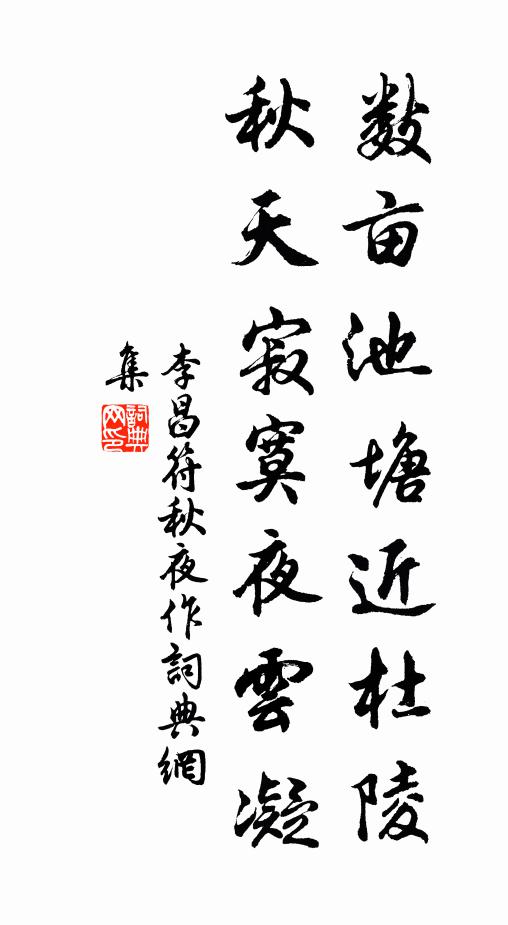 数亩池塘近杜陵
秋天寂寞夜雲凝
李昌符秋夜作詞典網
集
詞典网印